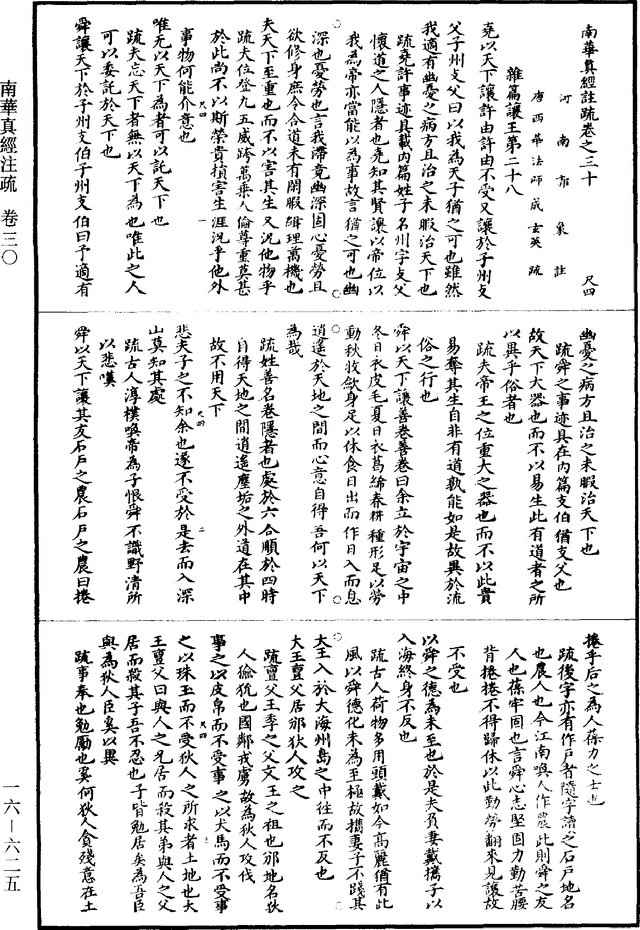 南華真經註疏卷之三十
尺四
河南郭象註
唐西華法師成玄英疏
雜篇讓王第二十八
堯以天下讓許由許由不受又讓於子州支
父子州支父曰以我為天子猶之可也雖然
我適有幽憂之病方且治之未暇治天下也
疏堯許事迹具載內篇姓子名州字支父
懷道之人隱者也堯知其賢讓以帝位以
我為帝亦當能以為事故言猶之可也幽
深也憂勞也言我滯竟幽深固心憂勞且
欲修身庶令合道未有閑暇緝理萬機也
夫天下至重也而不以害其生又況他物乎
疏夫位登九五威跨萬乘人倫尊重莫甚
於此尚不以斯榮貴損害生涯況乎他外
事物何能介意也
唯无以天下為者可以託天下也
疏夫忘天下者無以天下為也唯此之人
可以委託於天下也
舜讓天下於子州支伯子州支伯曰予適有
幽憂之病方且治之未暇治天下也
疏舜之事迹具在內篇支伯猶支父也
故天下大器也而不以易生此有道者之所
以異乎俗者也
疏夫帝王之位重大之器也而不以此貴
易奪其生自非有道孰能如是故異於流
俗之行也
舜以天下讓善卷善卷曰余立於宇宙之中
冬日衣皮毛夏日衣葛絺春耕種形足以勞
動秋收斂身足以休食日出而作日入而息
逍遙於天地之間而心意自得吾何以天下
為哉
疏姓善名卷隱者也處於六合順於四時
自得天地之間逍遙塵垢之外道在其中
故不用天下
悲夫子之不知余也遂不受於是去而入深
山莫知其處
疏古人淳樸喚帝為子恨舜不識野清所
以悲嘆
舜以天下讓其友石戶之農石戶之農曰捲
捲乎后之為人葆力之士也
疏後字亦有作戶者隨字讀之石戶地名
也農人也今江南喚人作農此則舜之友
人也葆牢固也言舜心志堅固力勤苦腰
背捲捲不得歸休以此勤勞翻來見讓故
不受也
以舜之德為未至也於是夫負妻戴攜子以
入海終身不反也
疏古人荷物多用頭戴如今高麗猶有此
風以舜德化未為至極故攜妻子不踐其
土入於大海州島之中往而不反也
大王亶父居邠狄人攻之
疏亶父王季之父文王之祖也邠地名狄
人獫狁也國鄰戎虜故為狄人攻伐
事之以皮帛而不受事之以犬馬而不受事
之以珠玉而不受狄人之所求者土地也大
王亶父曰與人之兄居而殺其弟與人之父
居而殺其子吾不忍也子皆勉居矣為吾臣
與為狄人臣奚以異
疏事奉也勉勵也奚何狄人貪殘意在土
南華真經注疏 卷三〇
一六—六二五